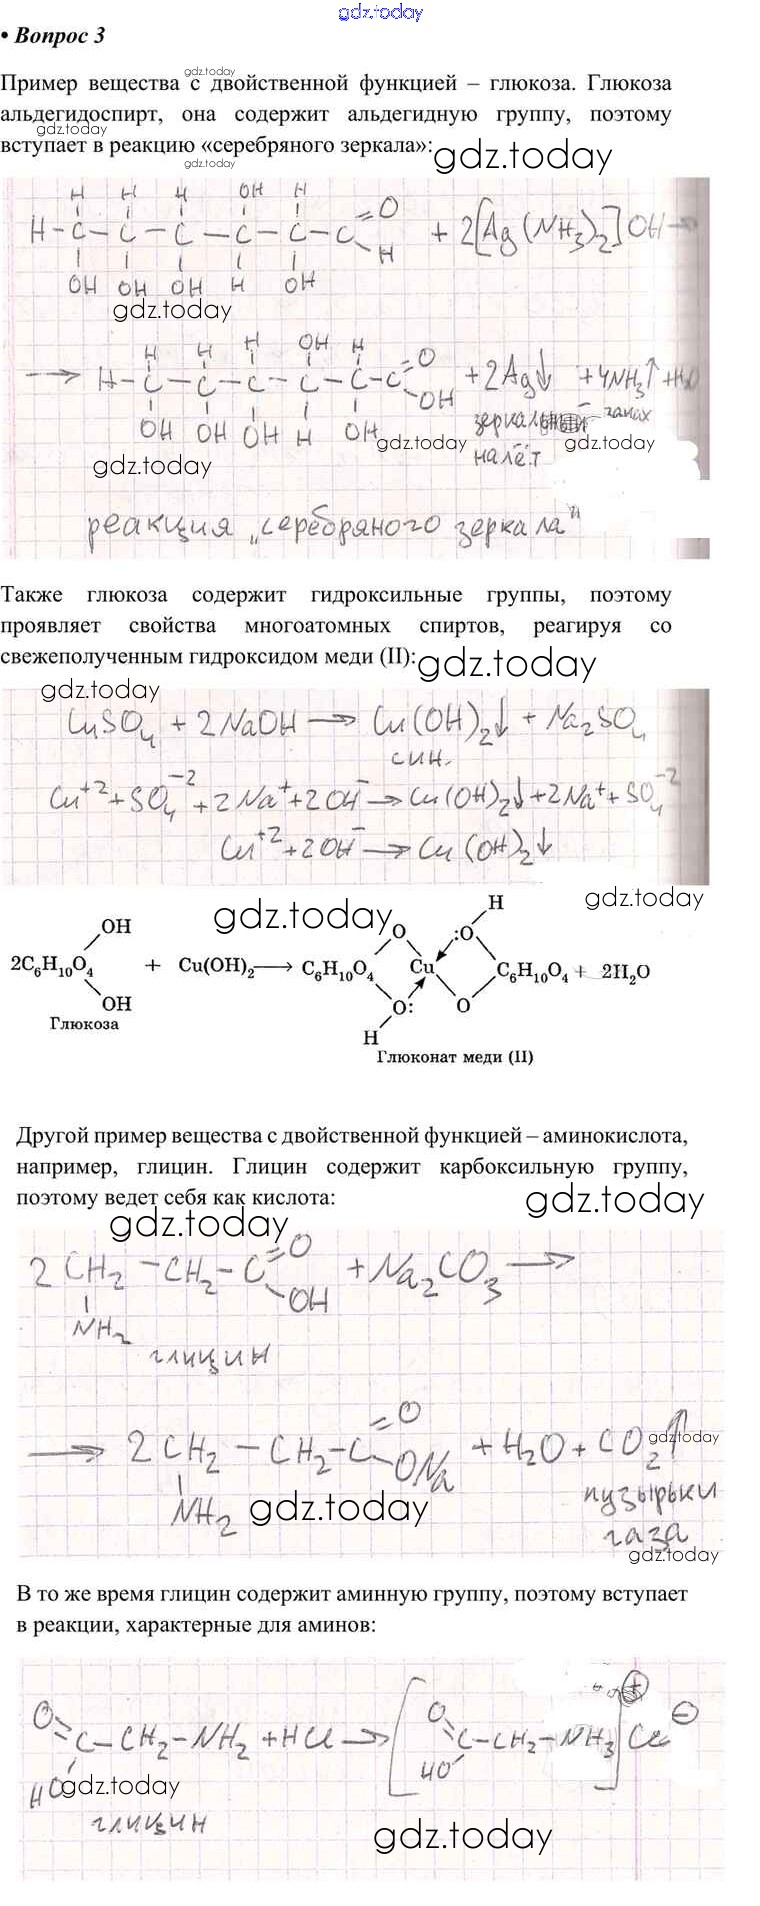 gdz.today
• Вопрос 3
gdz.today
Пример вещества с двойственной функцией – глюкоза. Глюкоза
альдегидоспирт, она содержит альдегидную группу, поэтому
gdz.today
вступает в реакцию «серебряного зеркала»:
gdz.today
gdz.today
H H H OH H
H - C - C - C - C - C - C =O + 2[Ag(NH3)2]OH →
H
OH OH OH H OH
gdz.today
H H H OH H
→ H - C - C - C - C - C - C =O + 2Ag↓ + 4NH3↑ + H2O
OH
OH OH OH H OH
зеркальный запах
gdz.today gdz.today
налёт
gdz.today
реакция „серебряного зеркала"
Также глюкоза содержит гидроксильные группы, поэтому
проявляет свойства многоатомных спиртов, реагируя со
свежеполученным гидроксидом меди (II):
gdz.today
gdz.today
CuSO4 + 2NaOH → Cu(OH)2↓ + Na2SO4
син.
Cu+2 + SO4-2 + 2Na+ + 2OH- → Cu(OH)2↓ + 2Na+ + SO4-2
Cu+2 + 2OH- → Cu(OH)2↓
gdz.today
gdz.today
H
OH O :O
2C6H10O4 + Cu(OH)2 → C6H10O4 Cu C6H10O4 + 2H2O
OH O: O
Глюкоза
H
Глюконат меди (II)
Другой пример вещества с двойственной функцией – аминокислота,
например, глицин. Глицин содержит карбоксильную группу,
поэтому ведет себя как кислота:
gdz.today
gdz.today
2CH2 - CH2 - C =O + Na2CO3 →
OH
NH2
глицин
→ 2CH2 - CH2 - C =O + H2O + CO2↑
ONa
gdz.today
NH2
пузырьки
gdz.today
газа
gdz.today
В то же время глицин содержит аминную группу, поэтому вступает
в реакции, характерные для аминов:
O= C - CH2 - NH2 + HCl → [O= C - CH2 - NH3]⊕ Cl⊖
HO HO
gdz.today
глицин
gdz.today